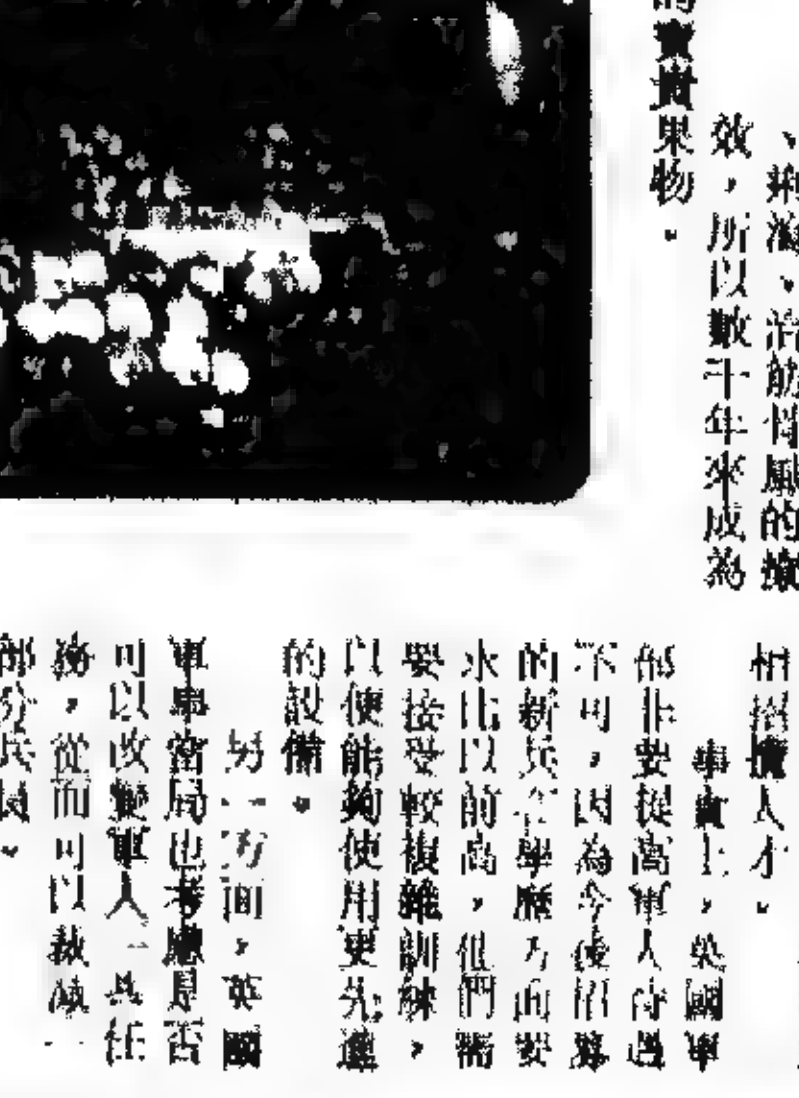 、治
的療
效，所以數十年來成為
的寶貴果物。
相招攬人才。
事實上，英國軍
部非要提高軍人待遇
不可，因為今後招募
的新兵在學歷方面要
求比以前高，他們需
要接受較複雜訓練，
以便能夠使用更先進
的設備。
另一方面，英國
軍事當局也考慮是否
可以改變軍人一些任
務，從而可以裁減一
部分兵員。